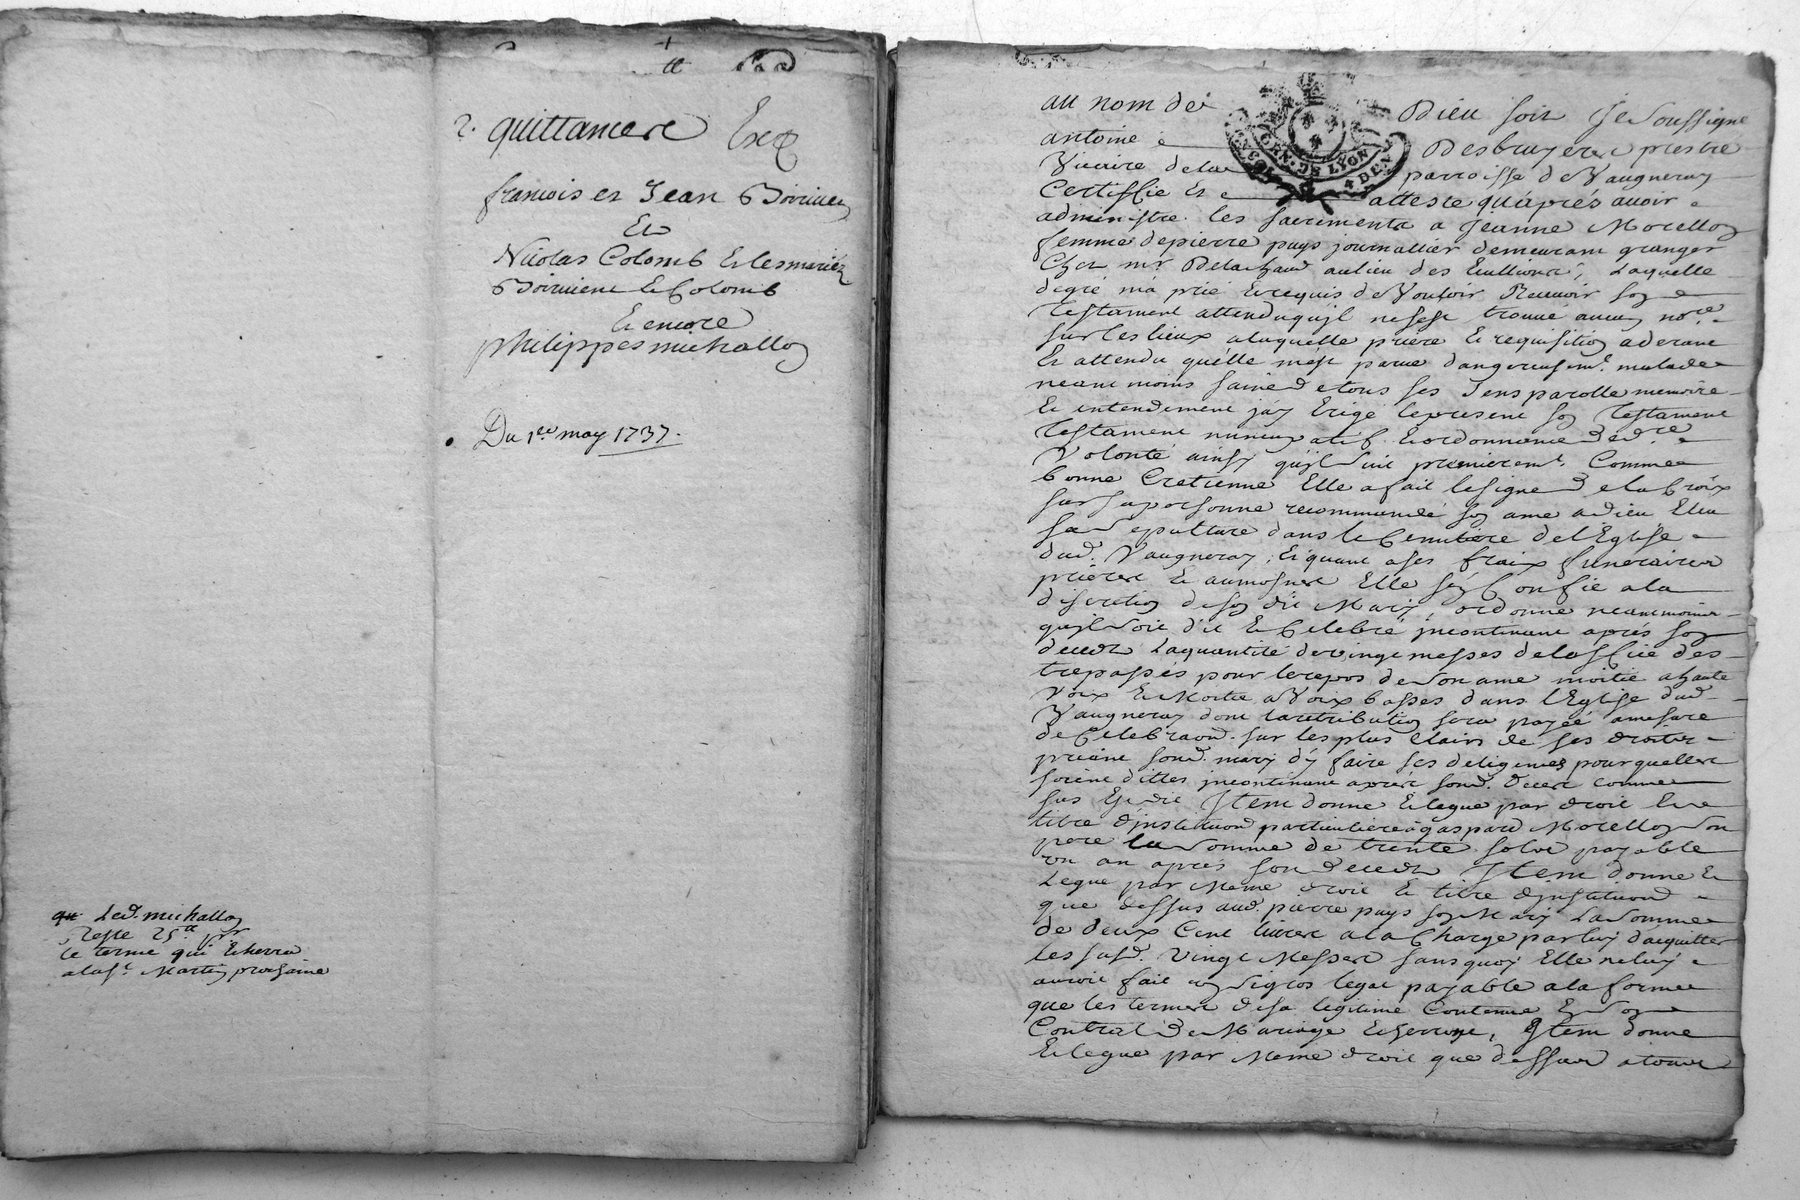 2. quittancere
françois et Jean Boiriven
Et
Nicolas Colomb Et les mariéz
Boiriviene et Colomb
Et encore
philippes michallon
Du 1er may 1737.
Led. michallon
Reste 25tt pr
le terme qui Echerra
a la st. Martin prochaine
au nom de Dieu soit Je soussigné
antoine Desbruyere prestre
Vicaire de la parroisse de Vaugneray
Certiffie Et atteste qu'aprés avoir
administre les sacrements a Jeanne Morellon
femme de pierre pays journallier demeurant granger
Chez mr. Delachaud au lieu des laquelle
degré ma prié Et requis de Vouloir Recevoir son
Testament attendu qu'jl ne sest trouvé aucun nore.
sur les lieux a laquelle priere Et requisition aderant
Et attendu quélle m'ést parue dangereusemt. malade
neant moins saine de tous ses sens parolle memoire
Et entendement j'ay Erigé le present son Testament
Testament nuncupatif Et ordonnance de dre.
Volonté ainsy qu'jl suit premieremt. Comme
bonne Cretienne Elle a fait le signe de la Croix
sur sa personne recommandé son ame a dieu Elu
sa sepulture dans le Cemitiere de l'Eglise
dud. Vaugneray, Et quant a ses fraix funeraires
prieres Et aumosnes Elle s'éy Confie a la
discretion de son dit Mary, ordonne neantmoins
qu'jl soit dit Et Celebré jncontinant aprés son
deced la quantité de vingt messes de l'office des
trepassés pour le repos de son ame moitié a haute
voix Et Moitié a Voix basses dans l'Eglise dud.
Vaugneray dont la retribution sera payéé a mesure
de Celebraon. sur les plus Clairs de ses droits
priant sond. mary d'y faire ses deligences pour quelles
soient dittes jncontinant aprés sond. deced comme
sus Est dit Jtem donne Et legue par droit Et
titre d'jnstitution particuliere a gaspard Morellon son
pere la somme de trente sols payable
un an aprés son deced Jtem donne Et
Legue par Meme droit Et titre d'jnstitution
que dessus aud. pierre pays son Mary La somme
de deux Cent livres a la Charge par luy d'acquitter
les susd. Vingt Messes sans quoy Elle ne luy
auroit fait un si gros legat payable a la forme
que les termes de sa legitime Contenue En son
Contrat de Mariage Echerront, Jtem donne
Et legue par Meme droit que dessus a tous